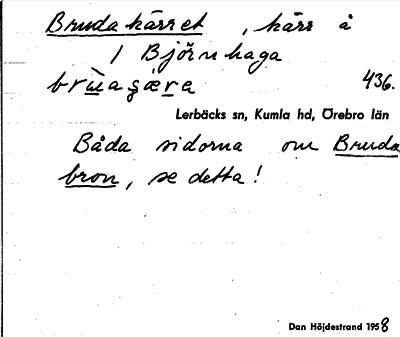 Brudakärret, kärr å
1 Björnhaga
436.
Lerbäcks sn, Kumla hd, Örebro län
Båda sidorna om Bruda
bron, se detta!
Dan Höjdestrand 1958